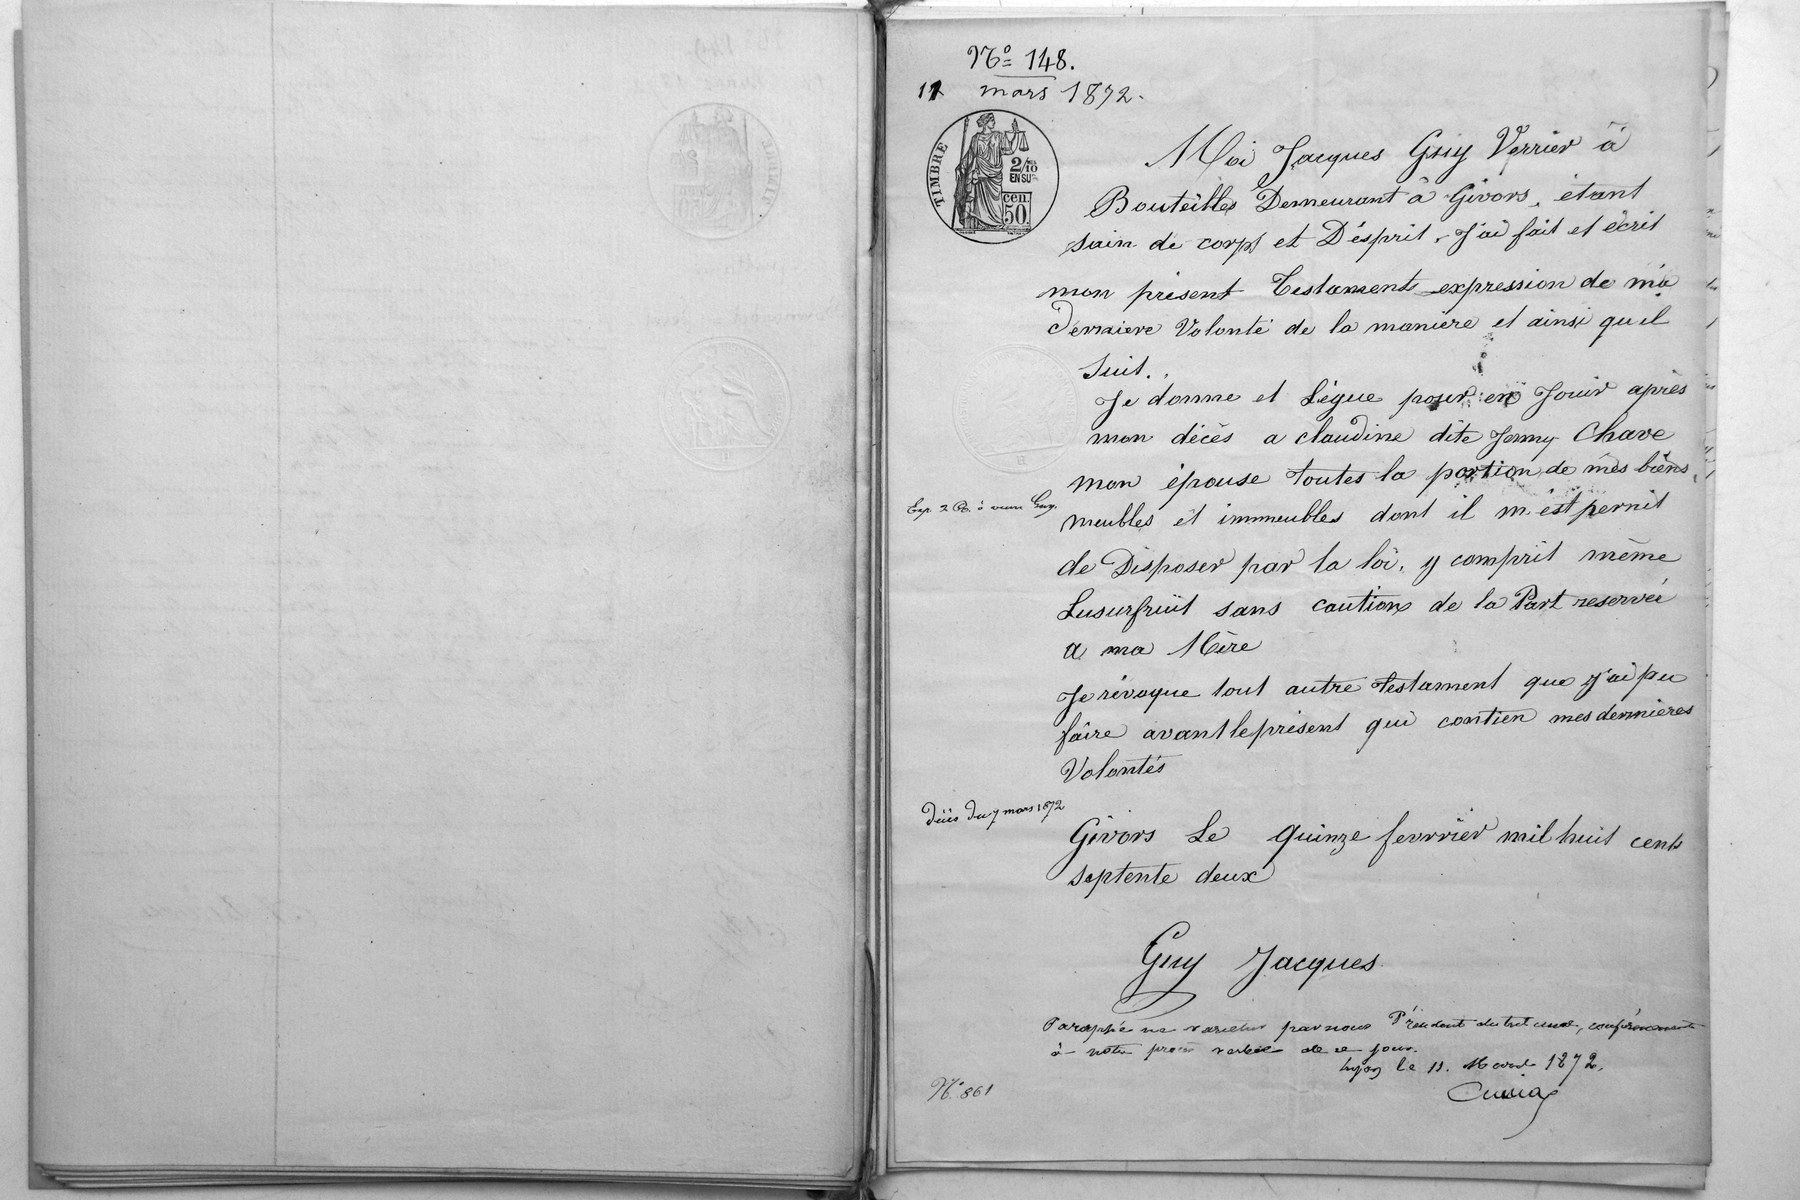 N° 148.
11 mars 1872.
TIMBRE
2/10
EN SUS
cen.
50.
Moi Jacques Guy Verrier à
Bouteilles Demeurant à Givors, étant
sain de corps et D'ésprit, J'ai fait et écrit
mon présent Testaments expression de ma
Derniere Volonté de la maniere et ainsi quil
Suit.
Je donne et Légue pour en Jouir après
mon décès a claudine dite Jenny Chave
mon épouse toutes la portion de mes biens
Exp. 2 à Guy.
meubles et immeubles dont il m'est permit
de Disposer par la loi, y comprit même
Lusurfruit sans caution de la Part reservée
a ma Mère
Je révoque tout autre testament que j'ai pu
faire avant le présent qui contien mes dernieres
Volontés
Décès du 7 mars 1872
Givors Le Quinze fevrrier mil huit cents
septente deux
Guy Jacques
Paraphé ne varietur par nous Président du tribunal, conformément
à notre procès verbal de ce jour.
Lyon le 11. Mars 1872.
N° 861